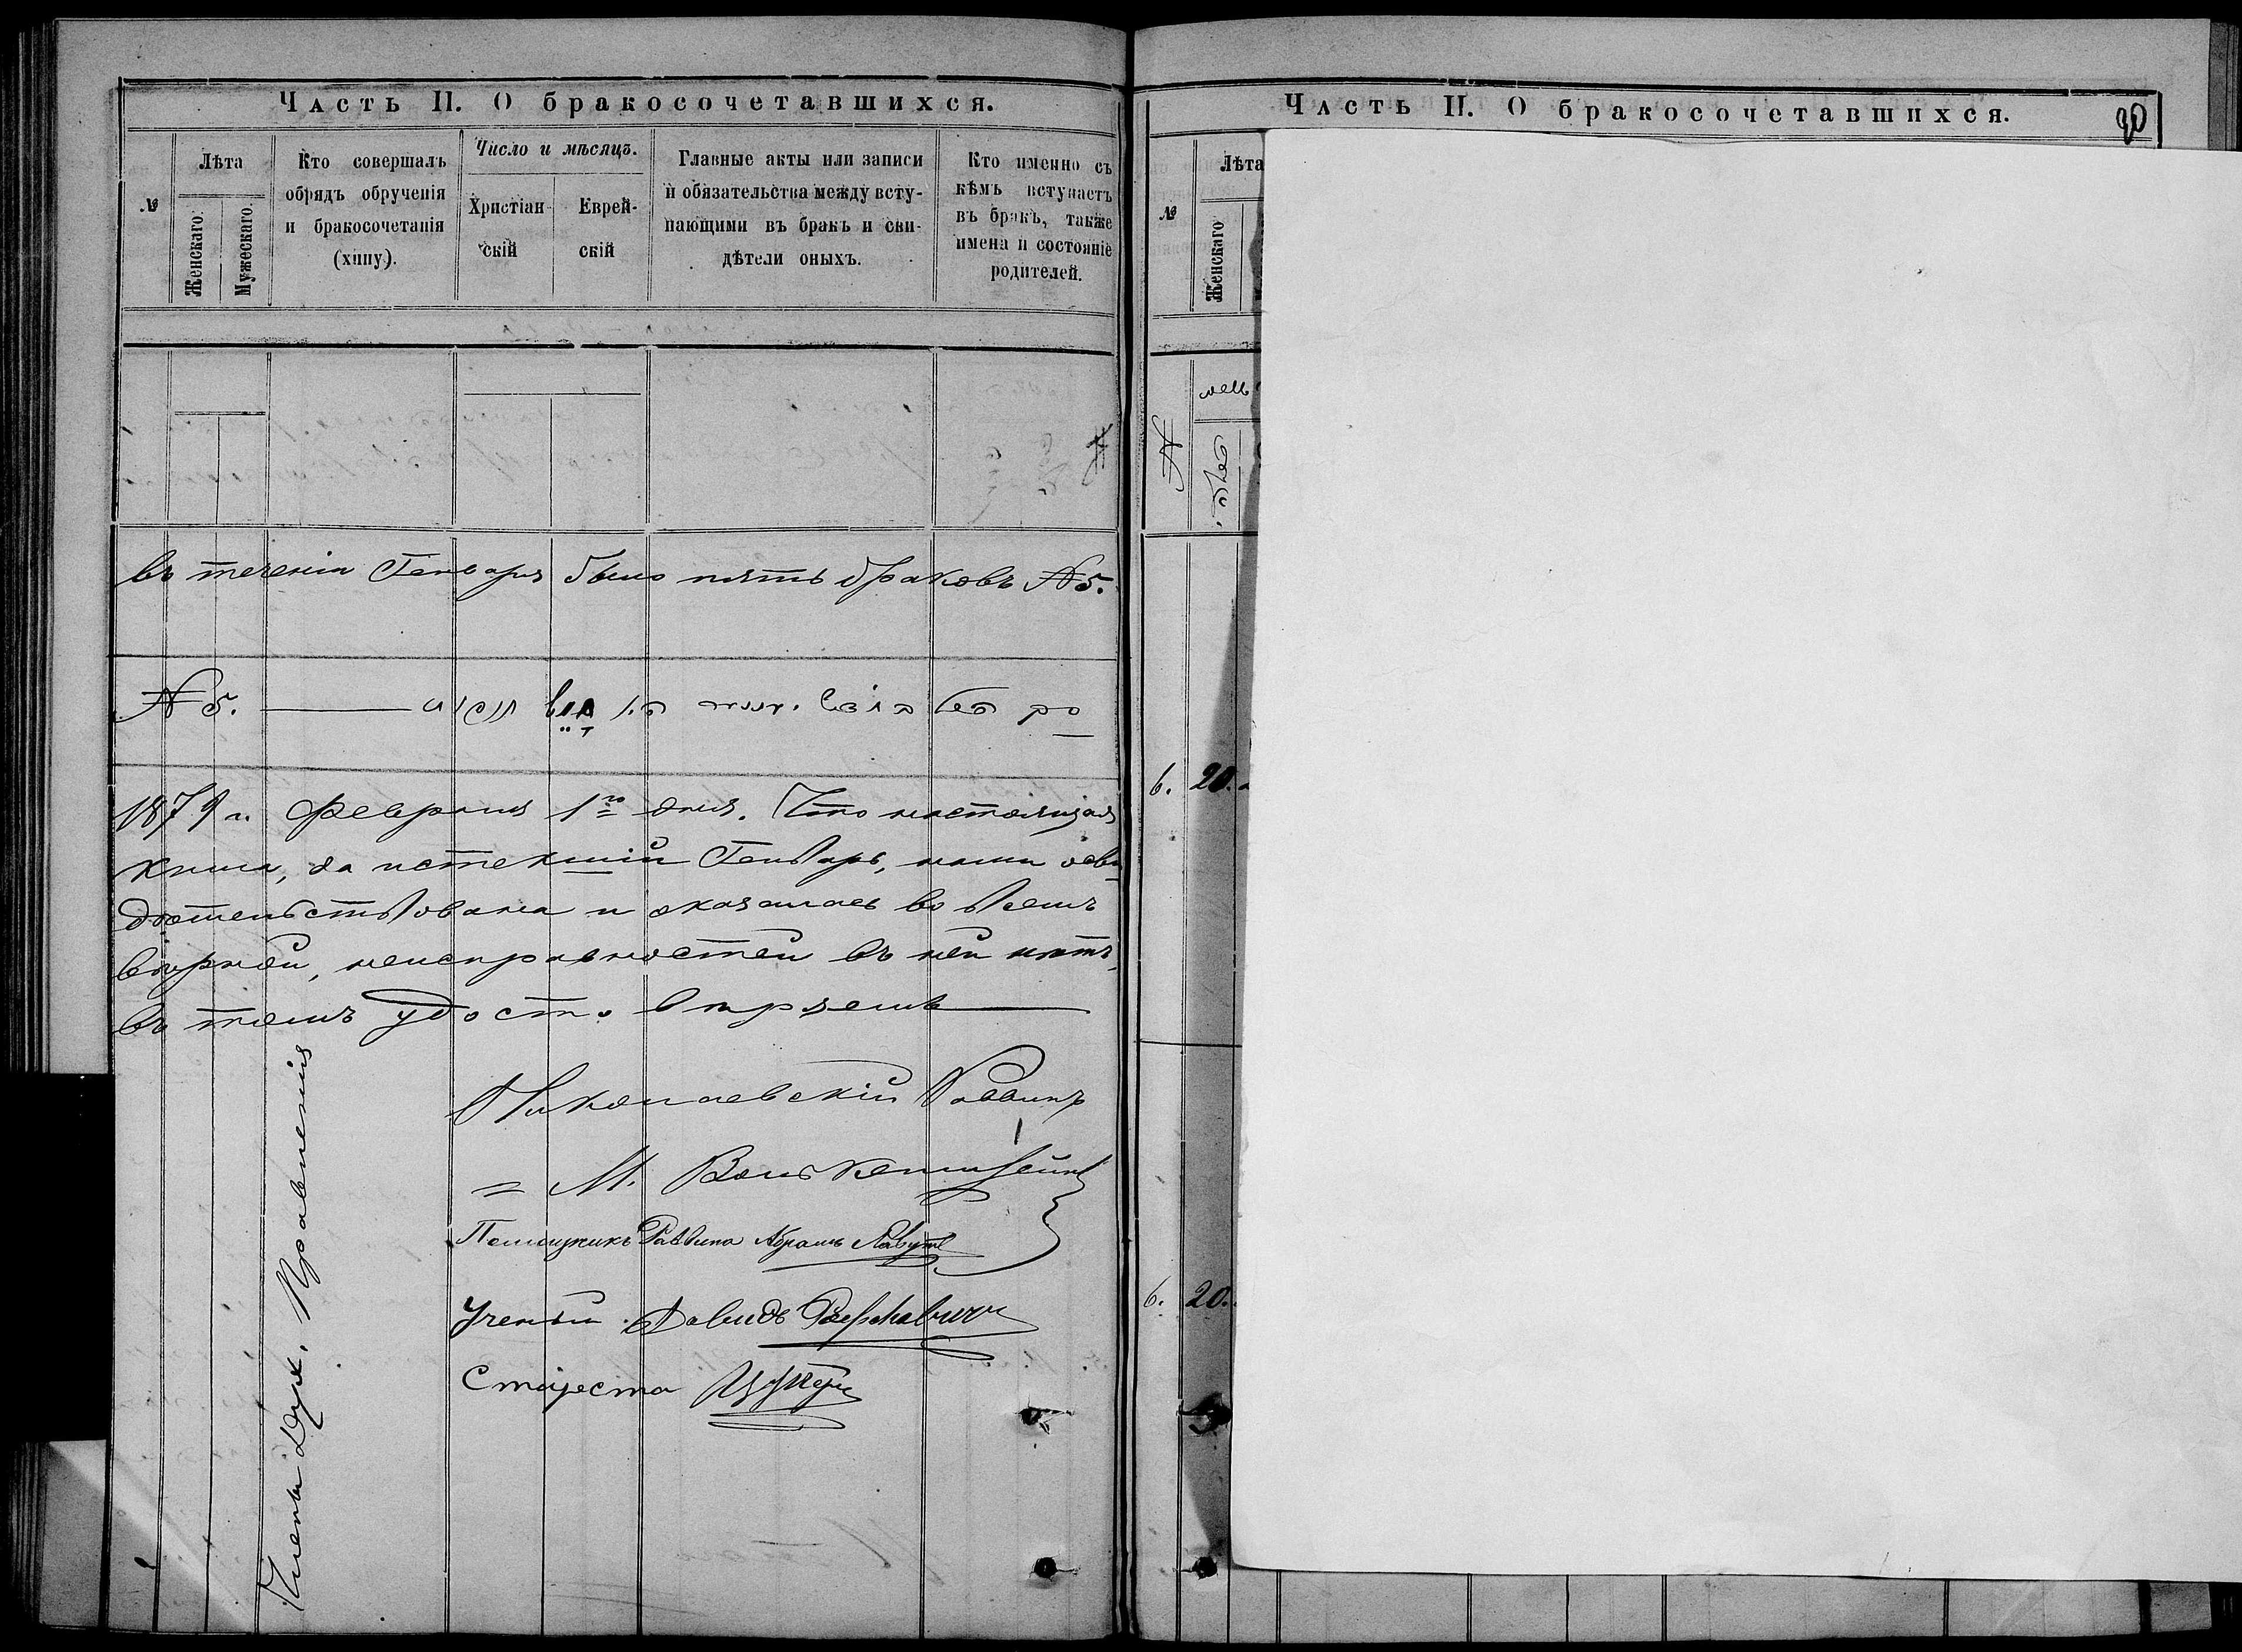 Часть II. О бракосочетавшихся.
№
Лѣта
Женскаго.
Мужескаго.
Кто совершалъ
обрядъ обрученія
и бракосочетанія
(хипу).
Число и мѣсяцъ.
Христіан-
скій
Еврей-
скій
Главные акты или записи
и обязательства между всту-
пающими въ бракъ и сви-
дѣтели оныхъ.
Кто именно съ
кѣмъ вступаетъ
въ бракъ, также
имена и состояніе
родителей.
въ теченіи Генваря было пять браковъ № 5.
№ 5.
1879 г. Февраля 1го дня. Что настоящая
книга, за истекшій Генварь, нами осви
дѣтельствована и оказалась во всемъ
вѣрной, неисправностей въ ней нѣтъ,
въ томъ удостовѣряемъ
Николаевскій Раввинъ
М.
Помощникъ Раввина Абрамъ
Ученый Давидъ
Староста
Члены Дух. Правленія
Часть II. О бракосочетавшихся.
№
Лѣта
Женскаго
6. 20.
6. 20.